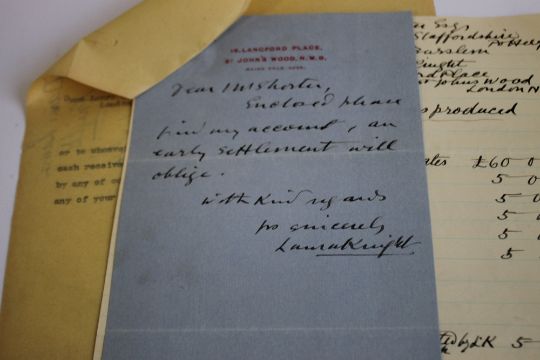 16, LANGFORD PLACE,
ST JOHN'S WOOD, N.W.8.
Dear Mr Shorter,
Enclosed please
find my account, an
early settlement will
oblige.
With kind regards
yrs sincerely
Laura Knight
or to whomsoever
cash receive
by any of ou
any of your
Esqs
Staffordshire
Burslem
Knight
rd Place
St Johns Wood
London N
s produced
ates £60 0
5 0
5 0
5 0
5 0
5
by LK 5